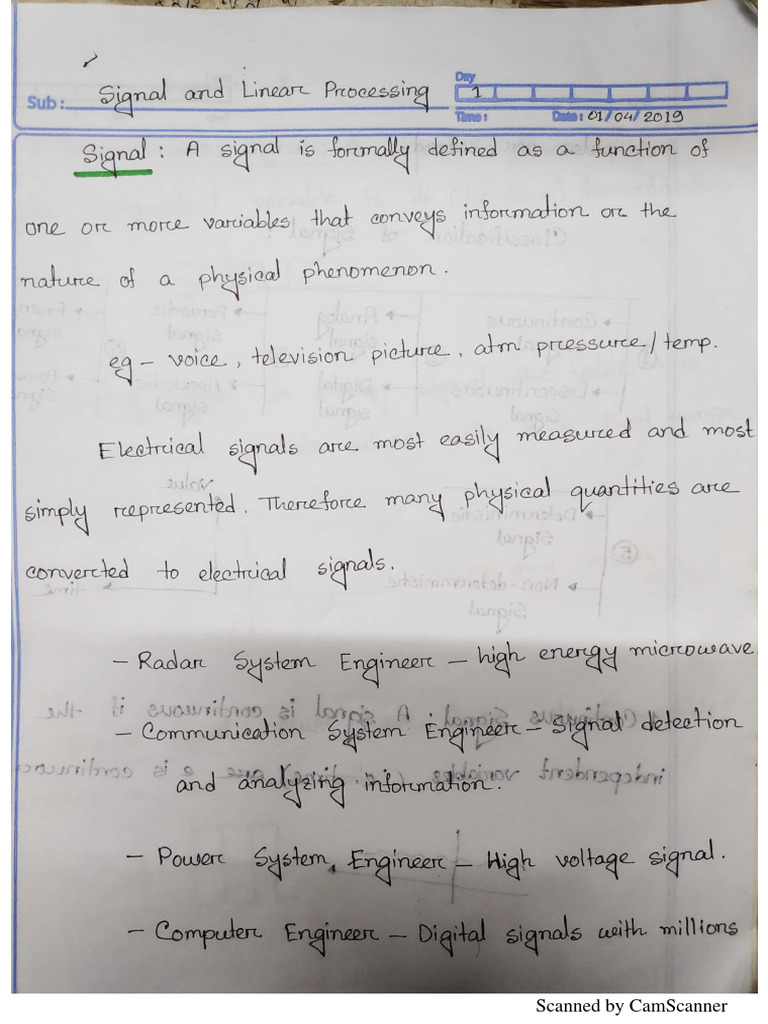 Day
Sub: Signal and Linear Processing 1
Time: Date: 01/04/2019
Signal : A signal is formally defined as a function of
one or more variables that conveys information or the
nature of a physical phenomenon.
eg – voice, television picture, atm pressure/temp.
Electrical signals are most easily measured and most
simply represented. Therefore many physical quantities are
converted to electrical signals.
– Radar System Engineer – high energy microwave
– Communication System Engineer – Signal detection
and analyzing information.
– Power System Engineer – High voltage signal.
– Computer Engineer – Digital signals with millions
Scanned by CamScanner